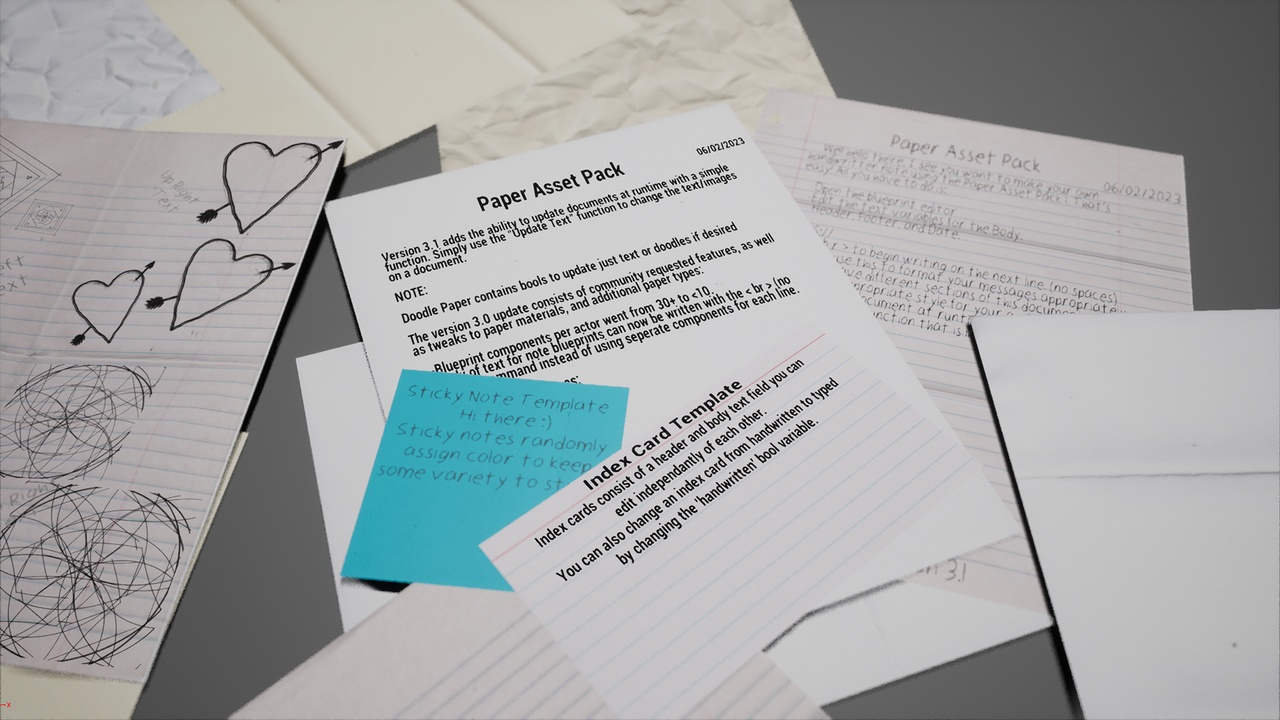 Up Right
Text
Paper Asset Pack
06/02/2023
Version 3.1 adds the ability to update documents at runtime with a simple
function. Simply use the "Update Text" function to change the text/images
on a document.
NOTE:
Doodle Paper contains bools to update just text or doodles if desired
The version 3.0 update consists of community requested features, as well
as tweaks to paper materials, and additional paper types:
Blueprint components per actor went from 30+ to <10.
of text for note blueprints can now be written with the < br > (no
instead of using seperate components for each line.
Sticky Note Template
Hi there :)
Sticky notes randomly
assign color to keep
some variety to
Index Card Template
Index cards consist of a header and body text field you can
edit independantly of each other.
You can also change an index card from handwritten to typed
by changing the 'handwritten' bool variable.
Paper Asset Pack
06/02/2023
Well hello there, I see you want to make your own
handwritten note with the Paper Asset Pack! That's
easy! All you have to do is:
Open the blueprint editor
Edit the text variables for the Body,
Header, Footer, and Date.
< br > to begin writing on the next line (no spaces)
use this to format your messages appropriately
different sections of this document
style for your
at
that is
3.1